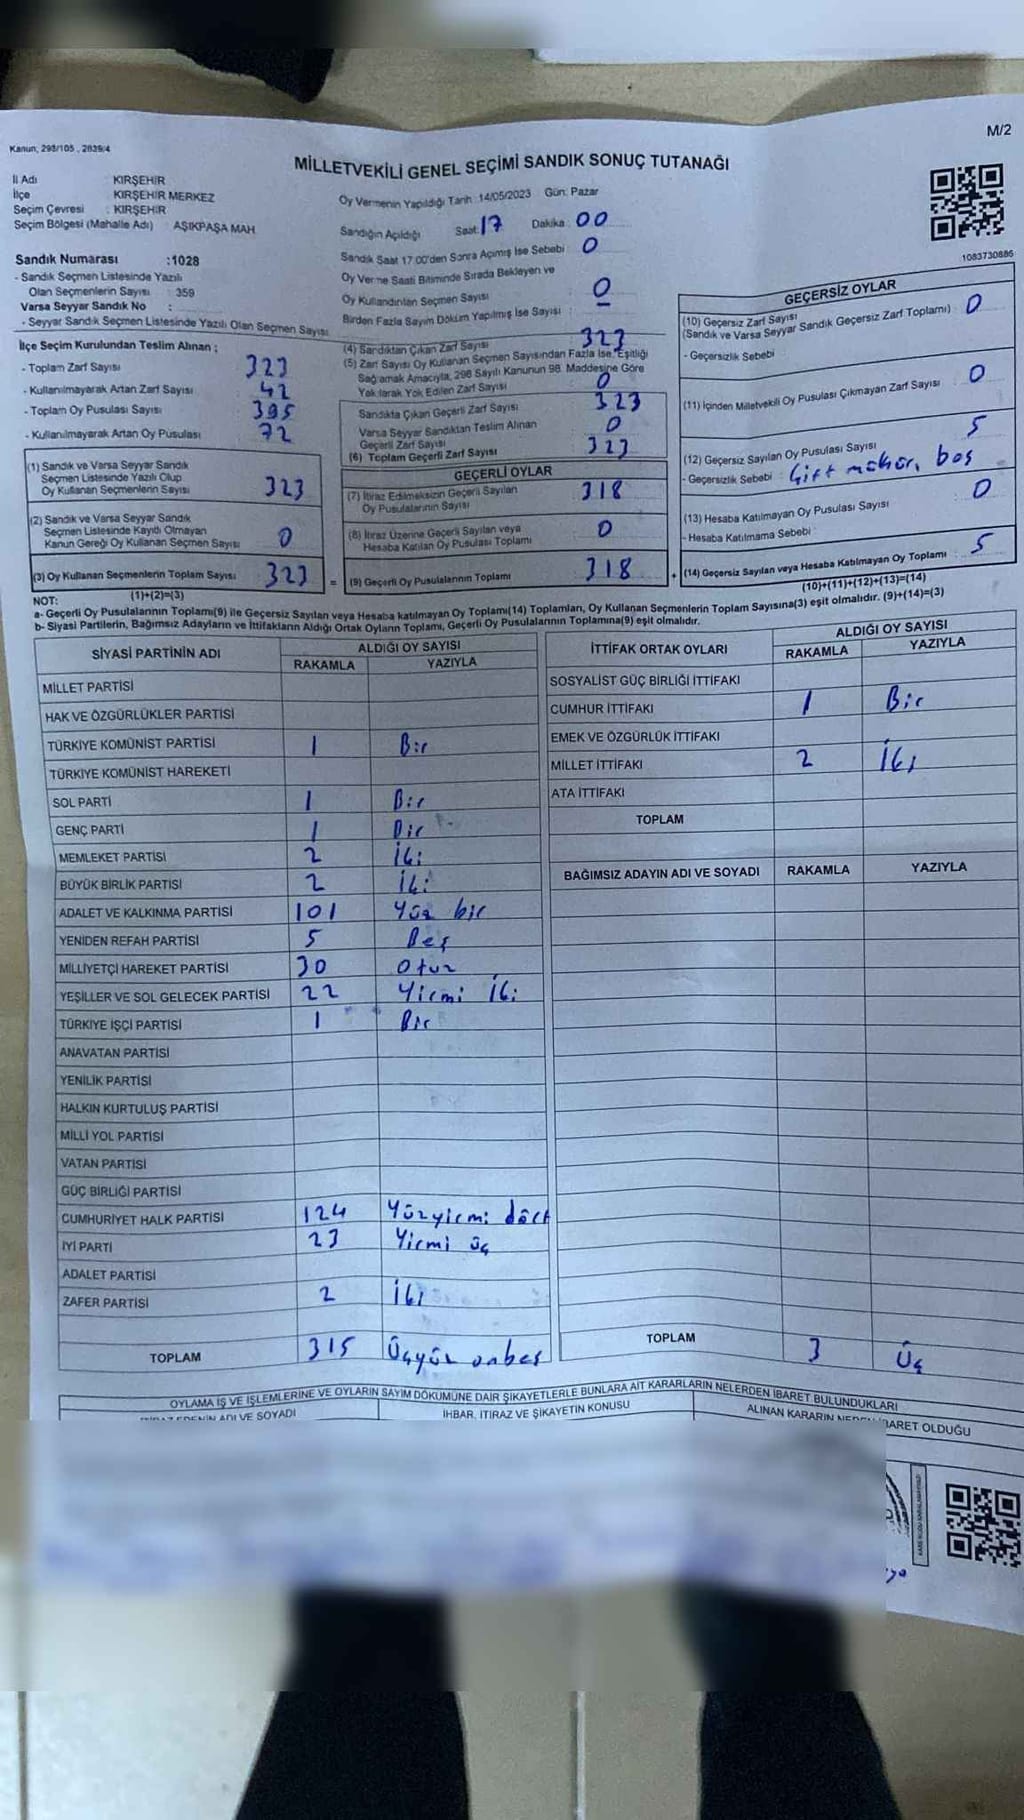 M/2
Kanun; 298/105 , 2839/4
MİLLETVEKİLİ GENEL SEÇİMİ SANDIK SONUÇ TUTANAĞI
İl Adı KIRŞEHİR
İlçe KIRŞEHİR MERKEZ
Seçim Çevresi : KIRŞEHİR
Seçim Bölgesi (Mahalle Adı) : AŞIKPAŞA MAH
Sandık Numarası :1028
- Sandık Seçmen Listesinde Yazılı
Olan Seçmenlerin Sayısı : 359
Varsa Seyyar Sandık No :
- Seyyar Sandık Seçmen Listesinde Yazılı Olan Seçmen Sayısı
İlçe Seçim Kurulundan Teslim Alınan ;
- Toplam Zarf Sayısı 323
- Kullanılmayarak Artan Zarf Sayısı 42
- Toplam Oy Pusulası Sayısı 395
- Kullanılmayarak Artan Oy Pusulası 72
(1) Sandık ve Varsa Seyyar Sandık
Seçmen Listesinde Yazılı Olup
Oy Kullanan Seçmenlerin Sayısı 323
(2) Sandık ve Varsa Seyyar Sandık
Seçmen Listesinde Kayıdı Olmayan
Kanun Gereği Oy Kullanan Seçmen Sayısı 0
(3) Oy Kullanan Seçmenlerin Toplam Sayısı 323 =
(1)+(2)=(3)
Oy Vermenin Yapıldığı Tarih :14/05/2023 Gün: Pazar
Sandığın Açıldığı Saat: 17 Dakika 00
Sandık Saat 17:00'den Sonra Açımış İse Sebebi 0
Oy Verme Saati Bitiminde Sırada Bekleyen ve
Oy Kullandırılan Seçmen Sayısı 0
Birden Fazla Sayım Döküm Yapılmış İse Sayısı :
(4) Sandıktan Çıkan Zarf Sayısı 323
(5) Zarf Sayısı Oy Kullanan Seçmen Sayısından Fazla İse, Eşitliği
Sağlamak Amacıyla, 298 Sayılı Kanunun 98. Maddesine Göre
Yakılarak Yok Edilen Zarf Sayısı 0
Sandıkta Çıkan Geçerli Zarf Sayısı 323
Varsa Seyyar Sandıktan Teslim Alınan
Geçerli Zarf Sayısı 0
(6) Toplam Geçerli Zarf Sayısı 323
GEÇERLİ OYLAR
(7) İtiraz Edilmeksizin Geçerli Sayılan
Oy Pusulalarının Sayısı 318
(8) İtiraz Üzerine Geçerli Sayılan veya
Hesaba Katılan Oy Pusulası Toplamı 0
(9) Geçerli Oy Pusulalarının Toplamı 318 +
1083730886
GEÇERSİZ OYLAR
(10) Geçersiz Zarf Sayısı
(Sandık ve Varsa Seyyar Sandık Geçersiz Zarf Toplamı) 0
- Geçersizlik Sebebi
(11) İçinden Milletvekili Oy Pusulası Çıkmayan Zarf Sayısı 0
(12) Geçersiz Sayılan Oy Pusulası Sayısı 5
- Geçersizlik Sebebi : Çift mühür, boş
(13) Hesaba Katılmayan Oy Pusulası Sayısı 0
- Hesaba Katılmama Sebebi
(14) Geçersiz Sayılan veya Hesaba Katılmayan Oy Toplamı 5
(10)+(11)+(12)+(13)=(14)
NOT:
a- Geçerli Oy Pusulalarının Toplamı(9) ile Geçersiz Sayılan veya Hesaba katılmayan Oy Toplamı(14) Toplamları, Oy Kullanan Seçmenlerin Toplam Sayısına(3) eşit olmalıdır. (9)+(14)=(3)
b- Siyasi Partilerin, Bağımsız Adayların ve İttifakların Aldığı Ortak Oyların Toplamı, Geçerli Oy Pusulalarının Toplamına(9) eşit olmalıdır.
SİYASİ PARTİNİN ADI ALDIĞI OY SAYISI
RAKAMLA YAZIYLA
MİLLET PARTİSİ
HAK VE ÖZGÜRLÜKLER PARTİSİ
TÜRKİYE KOMÜNİST PARTİSİ 1 Bir
TÜRKİYE KOMÜNİST HAREKETİ
SOL PARTİ 1 Bir
GENÇ PARTİ 1 Bir
MEMLEKET PARTİSİ 2 İki
BÜYÜK BİRLİK PARTİSİ 2 İki
ADALET VE KALKINMA PARTİSİ 101 Yüz bir
YENİDEN REFAH PARTİSİ 5 Beş
MİLLİYETÇİ HAREKET PARTİSİ 30 Otuz
YEŞİLLER VE SOL GELECEK PARTİSİ 22 Yirmi İki
TÜRKİYE İŞÇİ PARTİSİ 1 Bir
ANAVATAN PARTİSİ
YENİLİK PARTİSİ
HALKIN KURTULUŞ PARTİSİ
MİLLİ YOL PARTİSİ
VATAN PARTİSİ
GÜÇ BİRLİĞİ PARTİSİ
CUMHURİYET HALK PARTİSİ 124 Yüzyirmi dört
İYİ PARTİ 23 Yirmi üç
ADALET PARTİSİ
ZAFER PARTİSİ 2 İki
TOPLAM 315 Üçyüz onbeş
İTTİFAK ORTAK OYLARI ALDIĞI OY SAYISI
RAKAMLA YAZIYLA
SOSYALİST GÜÇ BİRLİĞİ İTTİFAKI
CUMHUR İTTİFAKI 1 Bir
EMEK VE ÖZGÜRLÜK İTTİFAKI
MİLLET İTTİFAKI 2 İki
ATA İTTİFAKI
TOPLAM
BAĞIMSIZ ADAYIN ADI VE SOYADI RAKAMLA YAZIYLA
TOPLAM 3 Üç
OYLAMA İŞ VE İŞLEMLERİNE VE OYLARIN SAYIM DÖKÜMÜNE DAİR ŞİKAYETLERLE BUNLARA AİT KARARLARIN NELERDEN İBARET BULUNDUKLARI
ADI VE SOYADI İHBAR, İTİRAZ VE ŞİKAYETİN KONUSU ALINAN KARARIN NEDEN İBARET OLDUĞU